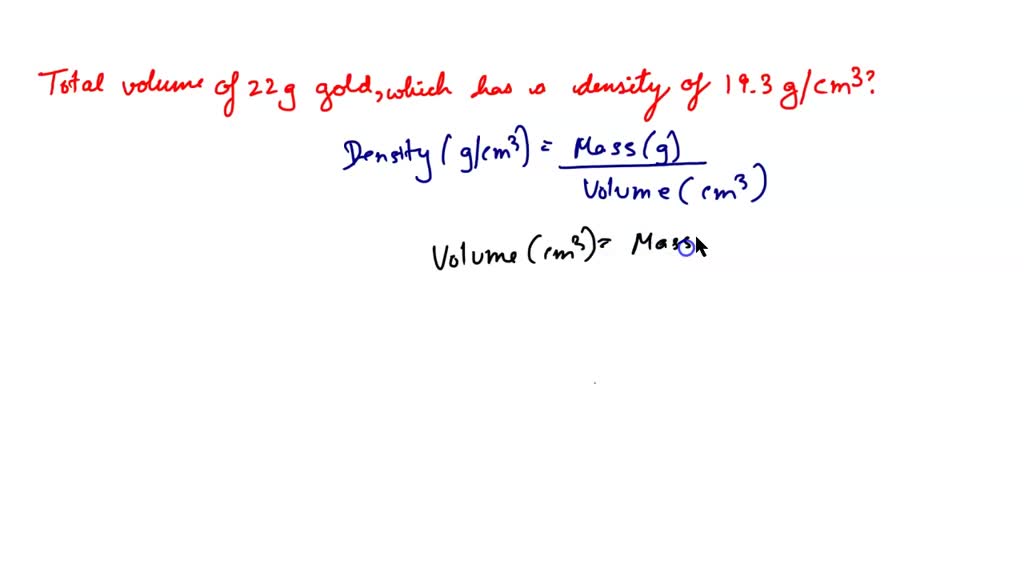 Total volume of 22g gold, which has a density of 19.3 g/cm³?
Density (g/cm³) = Mass(g)
Volume (cm³)
Volume (cm³) = Mass